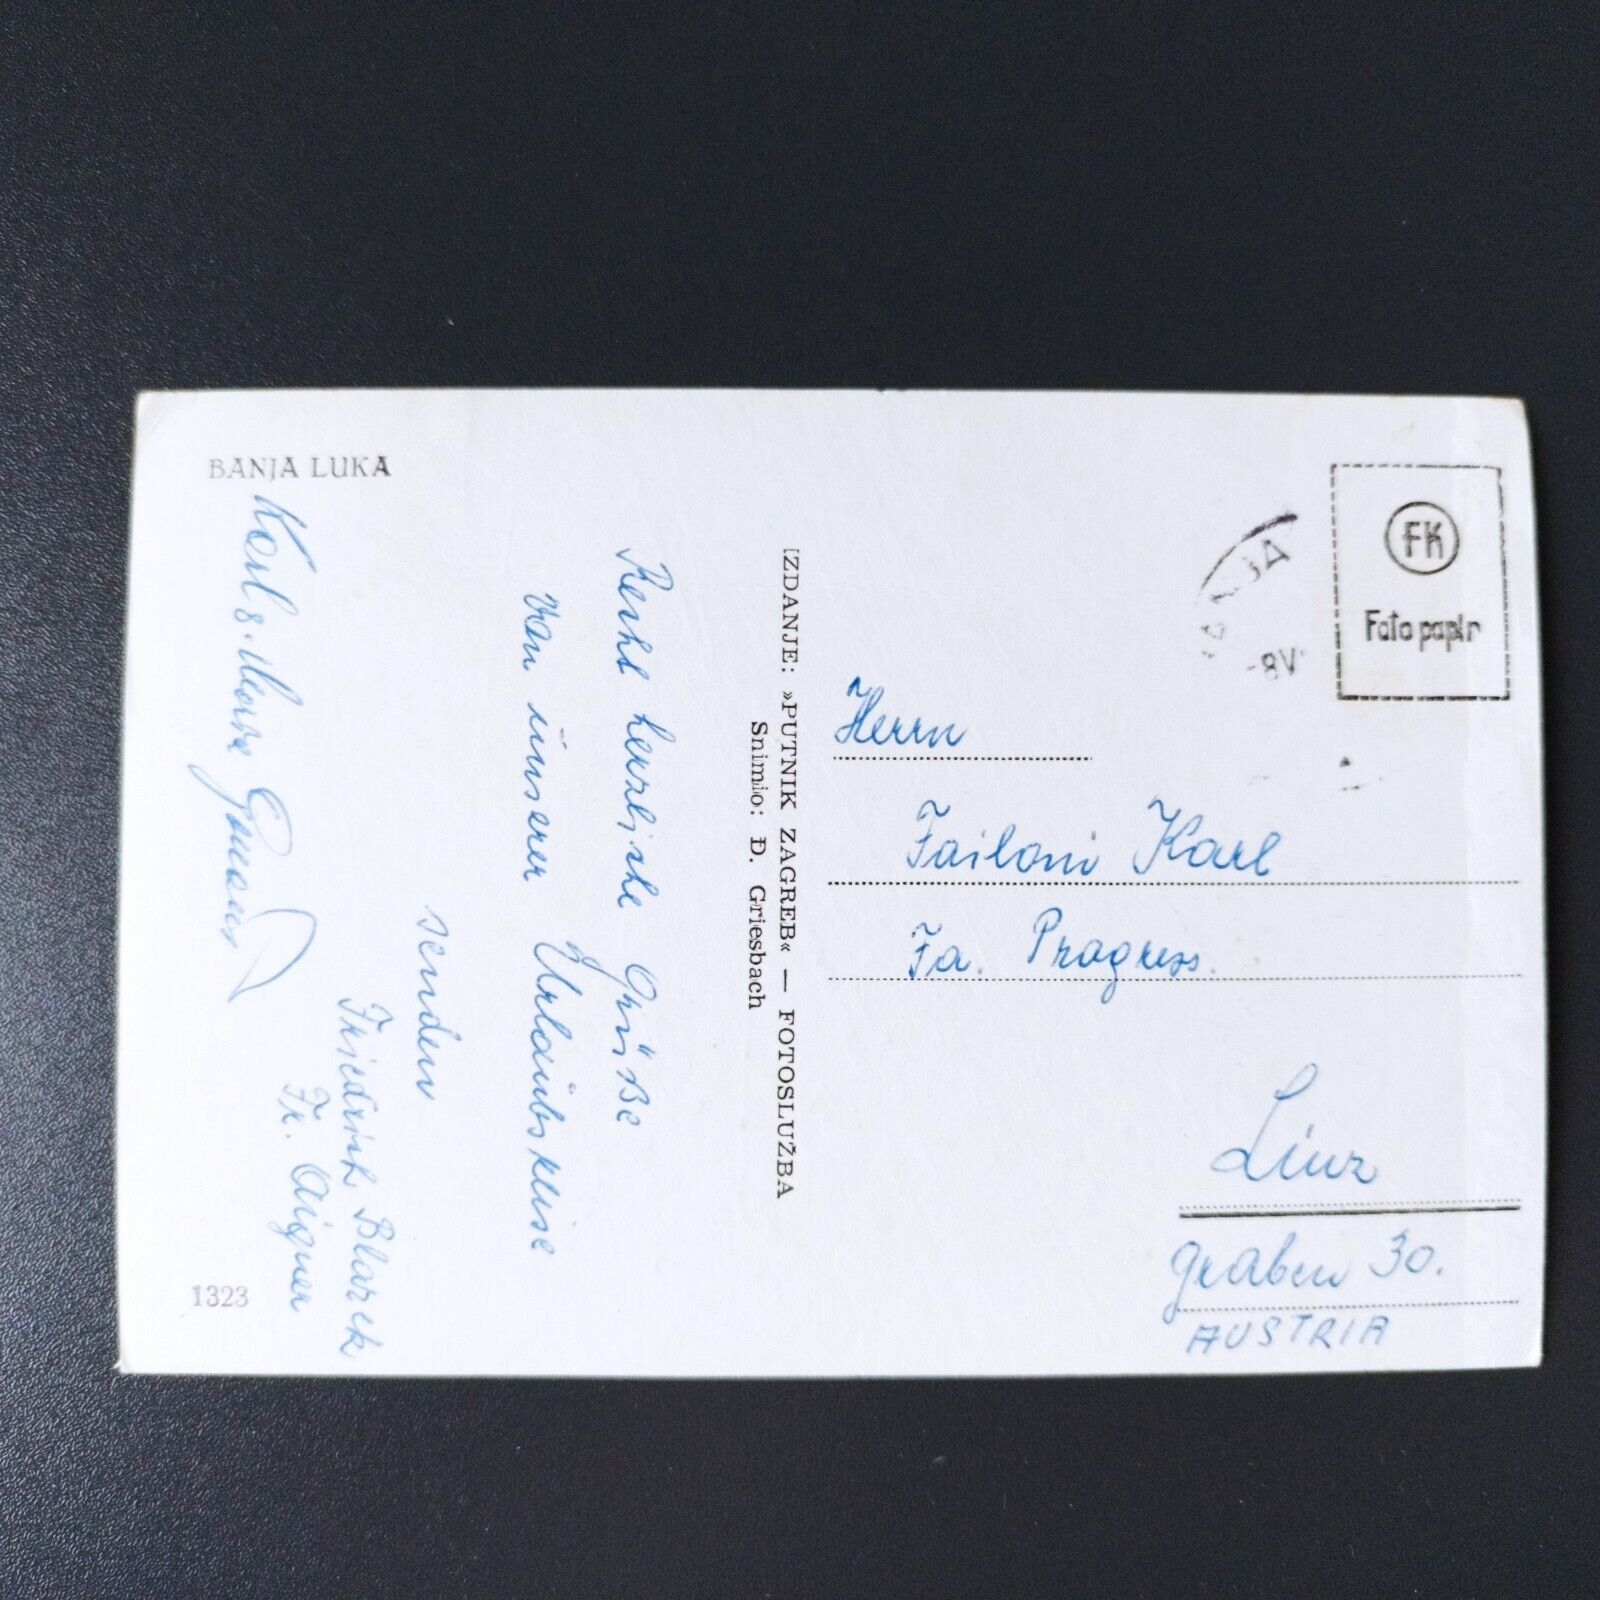 BANJA LUKA
Recht herzliche Grüße
von unserer Urlaubsreise
senden
Friedrich Blarek
Fr. Aigner
Karl
1323
IZDANJE: »PUTNIK ZAGREB« — FOTOSLUŽBA
Snimio: Đ. Griesbach
FK
Foto papir
BANJA
-8 V
Herrn
Failoni Karl
Fa. Progress.
Linz
Graben 30.
AUSTRIA